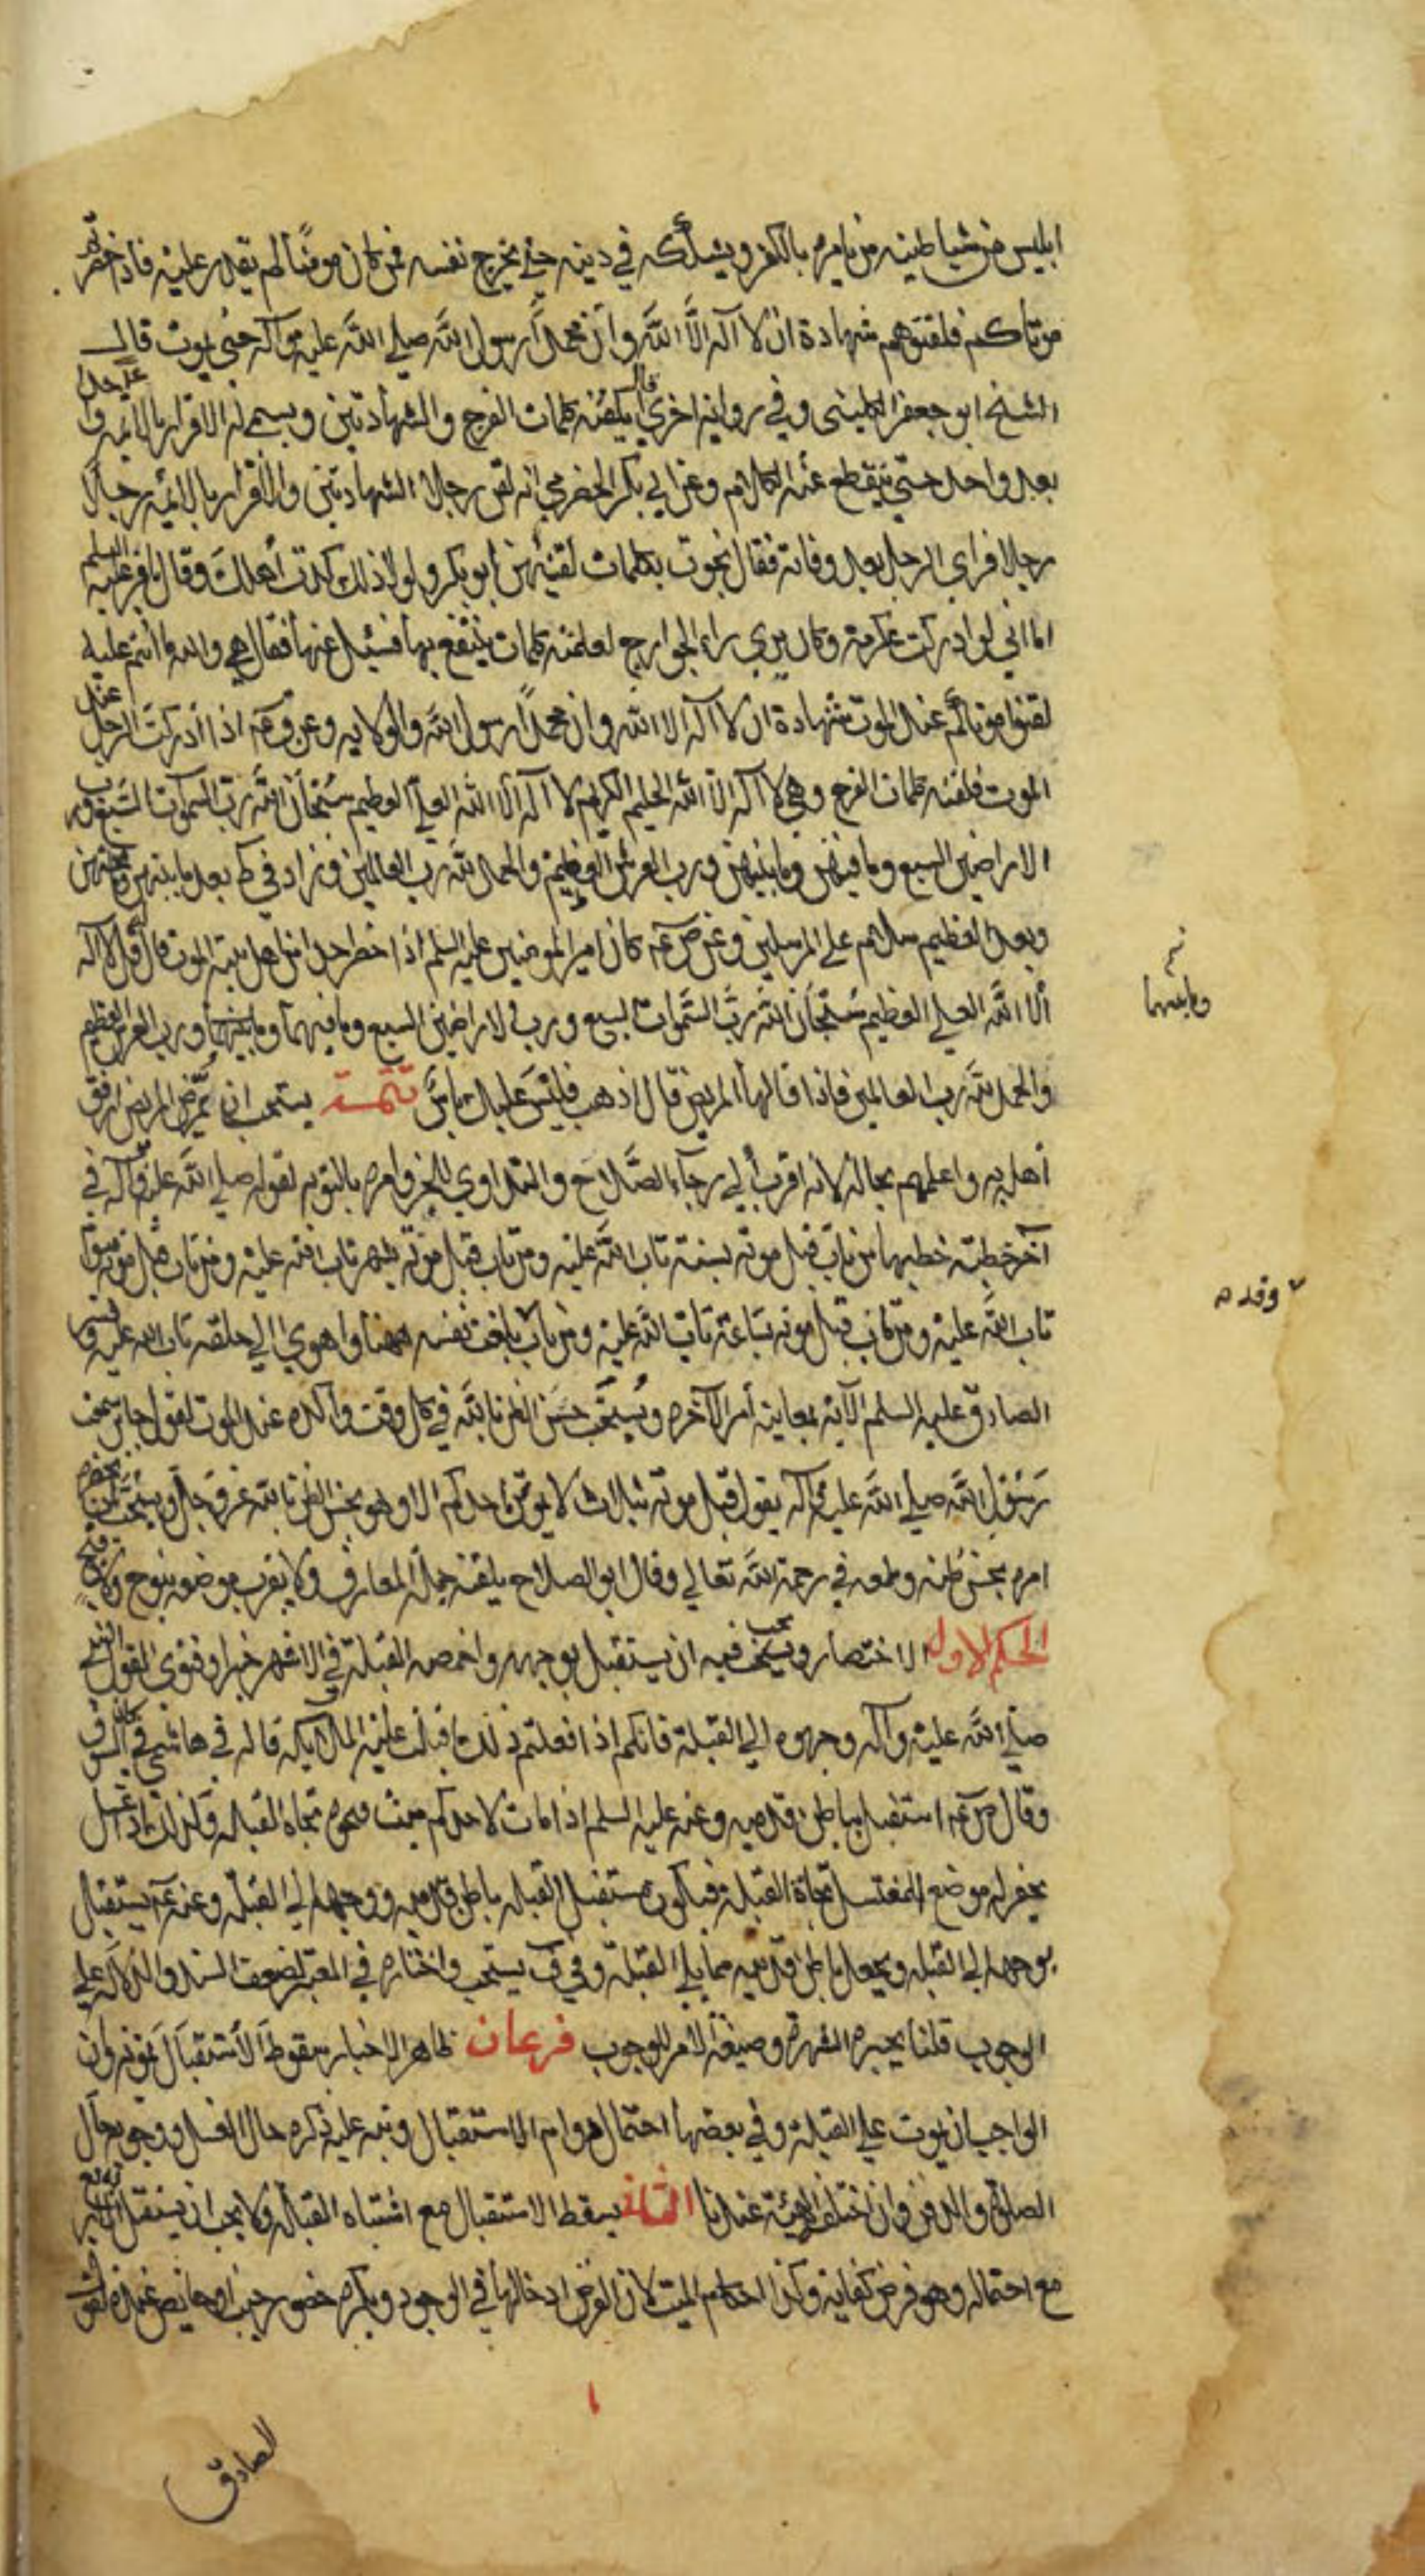 ابليس من شياطينه من يامره بالكفر ويشككه في دينه حتي يخرج نفسه فمن كان مومنًا لم يقدر عليه فاذا حضرتم
موتاكم فلقنوهم شهادة ان لا اله الّا اللّه وان محمدًا رسول اللّه صلي اللّه عليه واله حتي يموت قال
الشيخ ابو جعفر الكليني وفي رواية اخري قال يلقنه كلمات الفرج والشهادتين ويسمي له الاقرار بالائمه واحدا
بعد واحد حتي ينقطع عنه الكلام وعن ابي بكر الحضرمي انه لقن رجلا الشهادتين والاقرار بالائمه رجلا
رجلا فراي الرجل بعد وفاته فقال نجوت بكلمات لقنيهن ابو بكر ولولا ذلك كدت أهلك وقال الباقر عليه السلم
اما اني لو ادركت عكرمة وكان يري راي الخوارج لعلمته كلمات ينتفع بها فسئل عنها فقال هي والله ما انتم عليه
لقنوا موتاكم عند الموت شهادة ان لا اله الا اللّه وان محمدًا رسول اللّه والولايه وعن وعه اذا أدركت الرجل عند
الموت فلقنه كلمات الفرج وهي لا اله الّا اللّه الحليم الكريم لا اله الّا اللّه العلي العظيم سبحان اللّه رب السموات السبع ورب
الاراضين السبع وما فيهن وما بينهن ورب العرش العظيم والحمد للّه رب العالمين وزاد في كر بعد ما بينهن وما تحتهن
وبعد العظيم سلام علي المرسلين وعن ص عه كان امير المومنين عليه السلم اذا حضر احدا من اهل بيته الموت قال قل لا اله
الّا اللّه العلي العظيم سبحان اللّه رب السموات السبع ورب الاراضين السبع وما فيهما وما بينهما ورب العرش العظيم
والحمد للّه رب العالمين فاذا قالها المريض قال اذهب فليس عليك باس تتمة يستحب ان يمرّض المريض ارفق
أهله به واعلمهم بحاله لانه اقرب إلي رجاء الصلاح والتداوي للخبر وامره بالتوبه لقوله صلي اللّه عليه واله في
آخر خطبة خطبها من تاب قبل موته بسنة تاب اللّه عليه ومن تاب قبل موته بشهر تاب اللّه عليه ومن تاب قبل موته بيوم
تاب اللّه عليه ومن تاب قبل موته بساعة تاب اللّه عليه ومن تاب وقد بلغت نفسه ههنا واهوي الي حلقه تاب اللّه عليه وفسر
الصادق عليه السلم الآية بمعاينة أمر الآخرة ويستحب حسن الظن باللّه في كل وقت وآكده عند الموت لقول جابر سمعت
رسول اللّه صلي اللّه عليه واله يقول قبل موته بثلاث لا يموتن احدكم الا وهو يحسن الظن باللّه عز وجل ويستحب لمن يحضره
امره بحسن ظنه وطمعه في رحمة اللّه تعالي وقال ابو الصلاح يلقنه جمل المعارف ولا يقرب موضعه بنوح ولا
الحكم الاول الاحتضار ويجب فيه ان يستقبل بوجهه واخمصه القبلة في الاشهر خبرا وفتوي لقول النبي
صلي اللّه عليه وآله وجهوه الي القبلة فانكم اذا فعلتم ذلك اقبلت عليه الملايكه قاله في هاشمي كان في السوق
وقال ص عه استقبل بباطن قدميه وعنه عليه السلم اذا مات لاحدكم ميت فسجوه تجاه القبله وكذلك اذا غسل
يحفر له موضع المغتسل تجاه القبلة فيكون مستقبل القبله بباطن قدميه ووجهه الي القبلة وعنه عه يستقبل
بوجهه الي القبله ويجعل باطن قدميه مما يلي القبلة وفي ف يستحب واختاره في المعتبر لضعف السند والدلالة علي
الوجوب قلنا يجبره الشهرة وصيغة الامر للوجوب فرعان ظاهر الاخبار سقوط الاستقبال بموته وان
الواجب ان يموت علي القبلة وفي بعضها احتمال دوام الاستقبال ونبه عليه ذكره حال الغسل ووجوبه حال
الصلاة والدفن وان اختلف الهيئة عندنا الثاني يسقط الاستقبال مع اشتباه القبله ولا يجب ان يستقبل به الاربع
مع احتماله وهو فرض كفاية وكذا احكام الميت لان الغرض ادخالها في الوجود ويكره حضور جنب او حايض عنده لقول
وما بينهما
وقد ه
الصادق